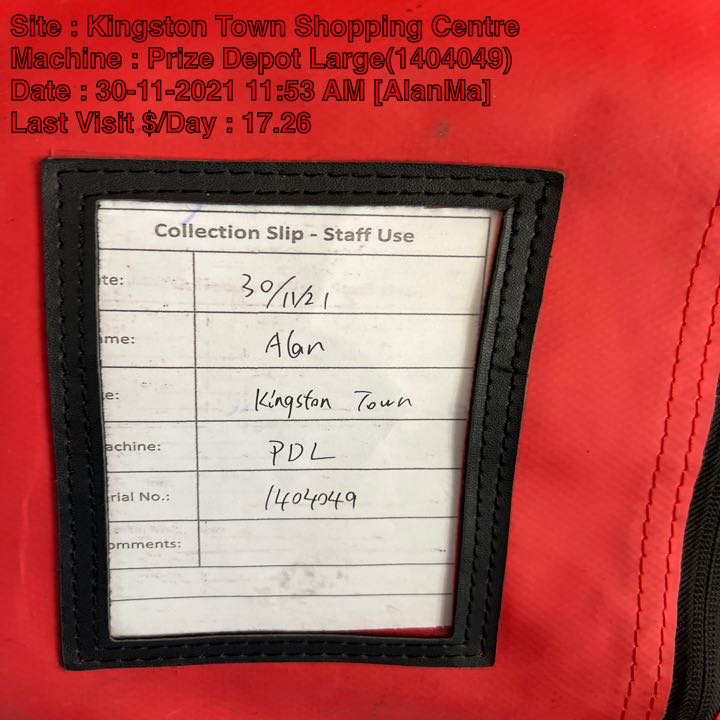 Site : Kingston Town Shopping Centre
Machine : Prize Depot Large(1404049)
Date : 30-11-2021 11:53 AM [AlanMa]
Last Visit $/Day : 17.26
Collection Slip - Staff Use
te: 30/11/21
me: Alan
e: Kingston Town
achine: PDL
rial No.: 1404049
omments: